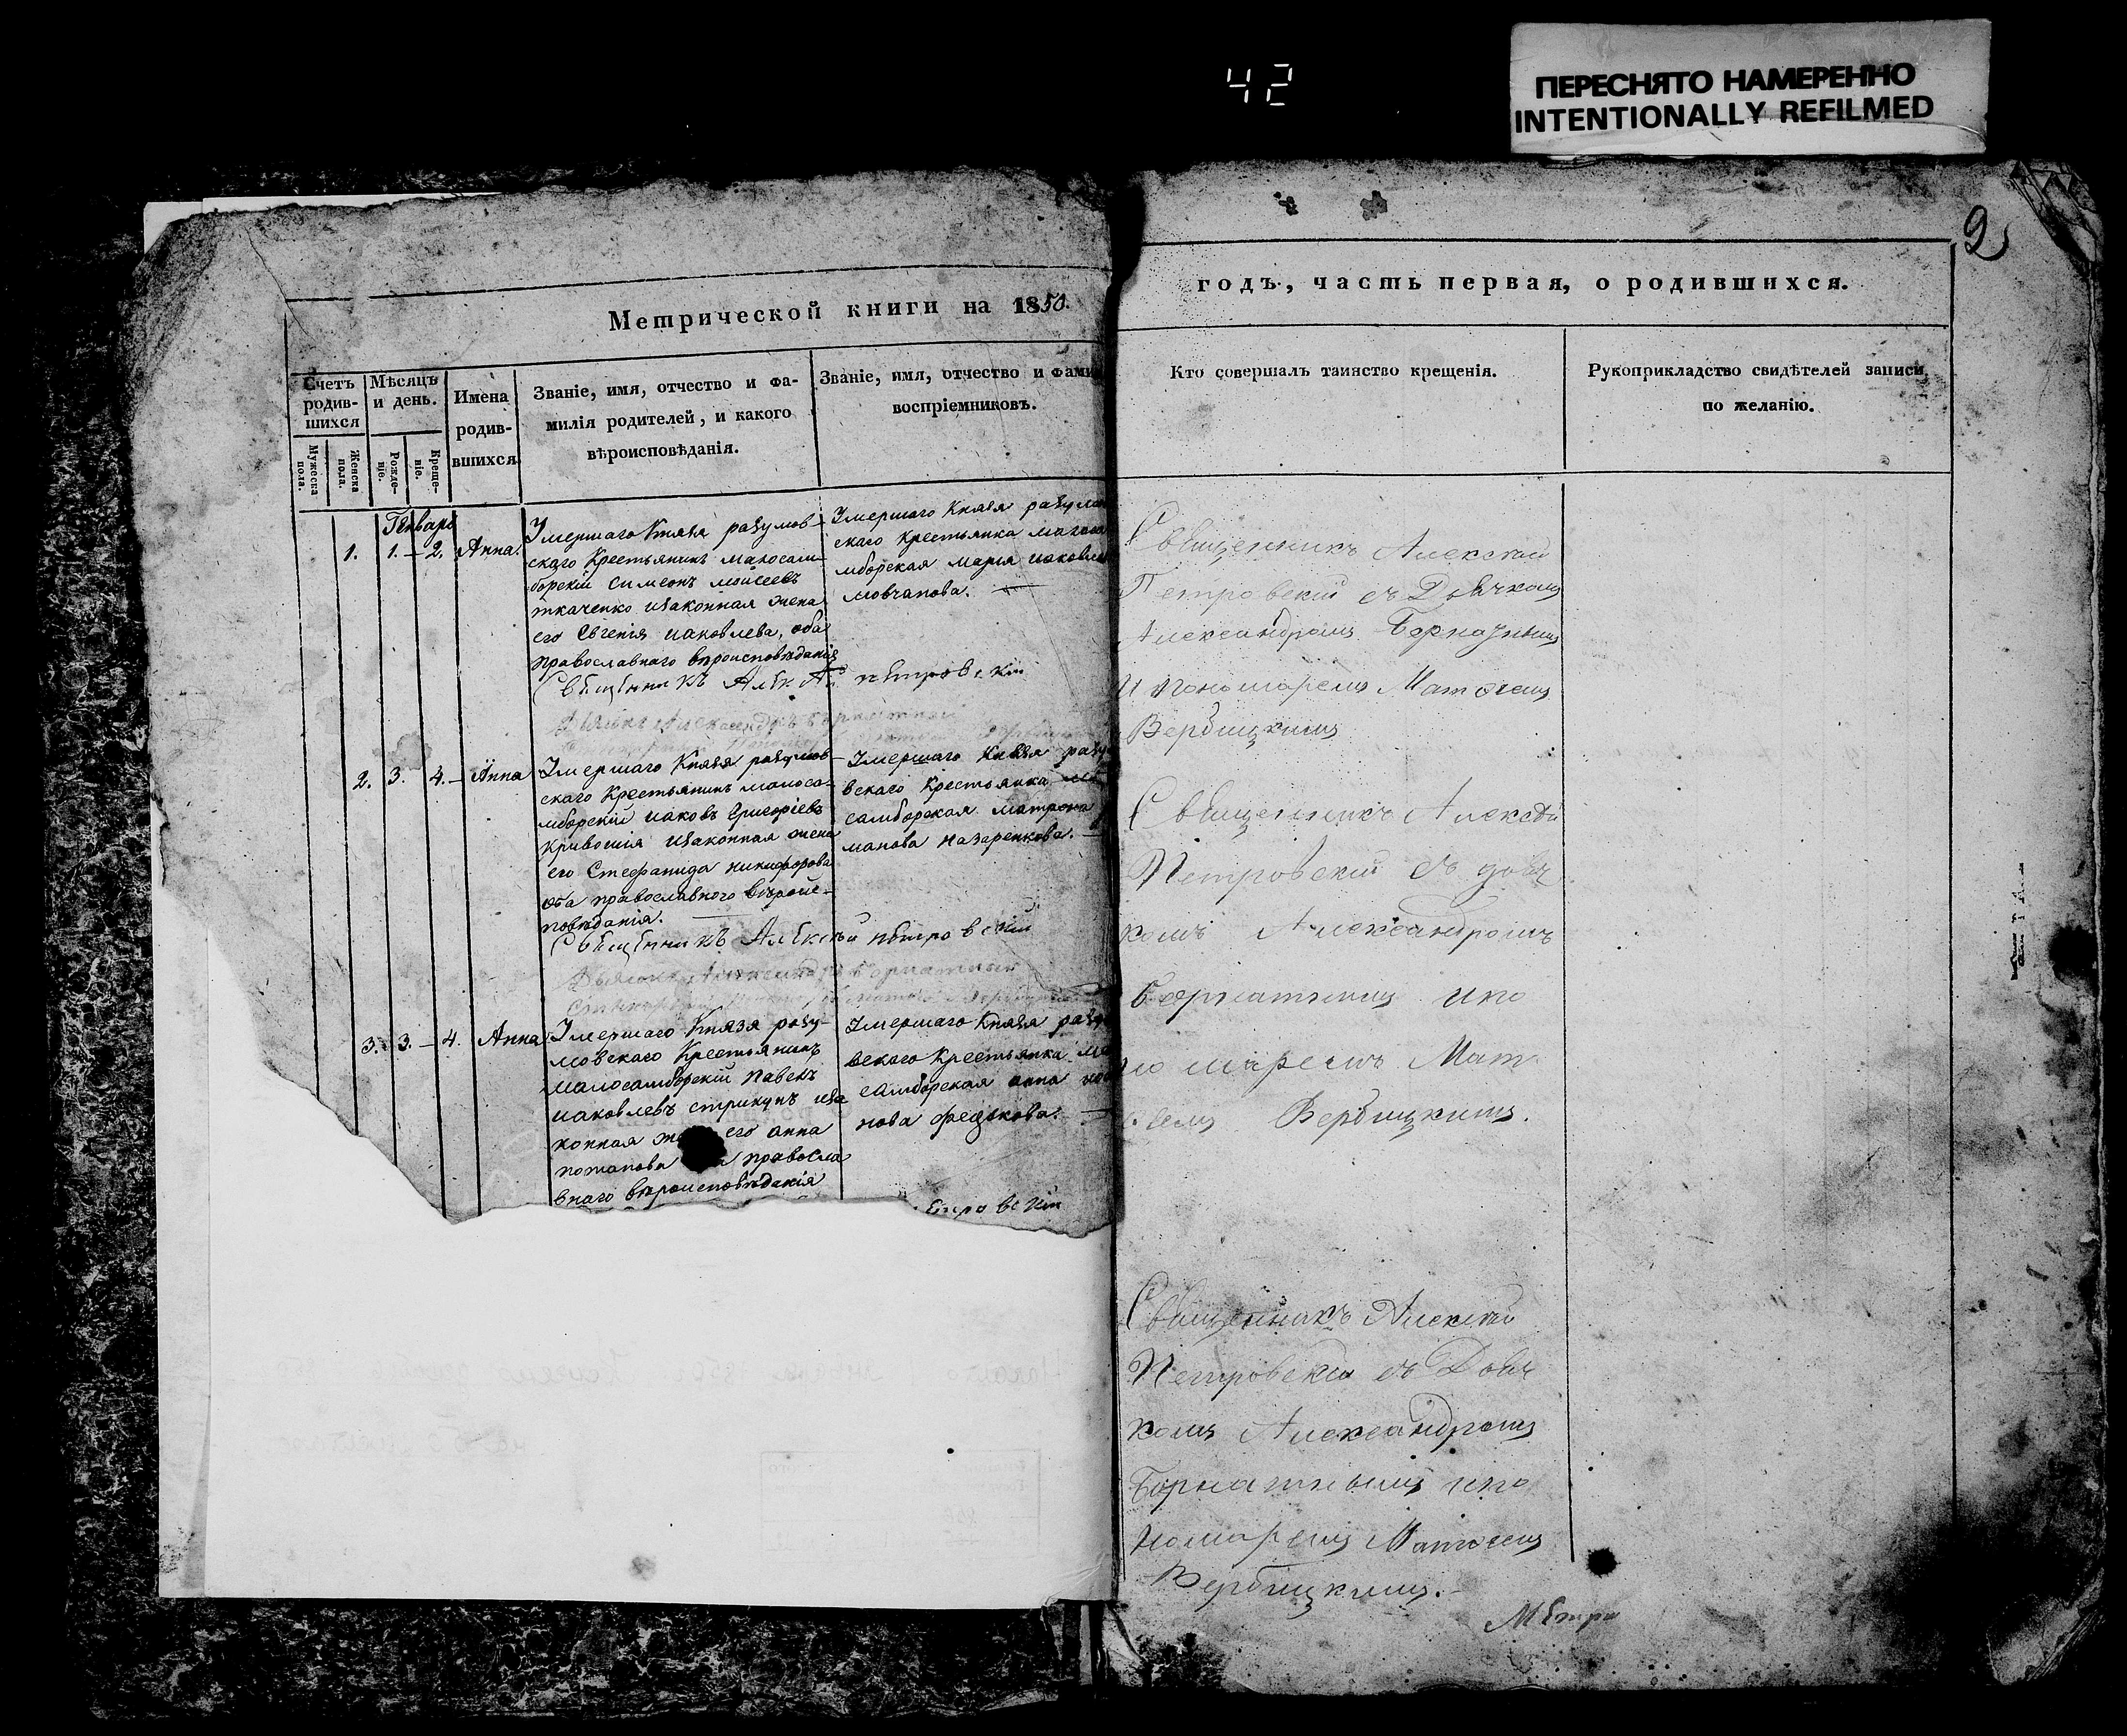 42
ПЕРЕСНЯТО НАМЕРЕННО
INTENTIONALLY REFILMED
2
Метрической книги на 1850.
годъ, часть первая, о родившихся.
Счетъ родив-шихся
Мужеска пола.
Женска пола.
Мѣсяцъ и день.
Рожде-ніе.
Креще-ніе.
Имена родив-шихся.
Званіе, имя, отчество и фа-
милія родителей, и какого
вѣроисповѣданія.
Званіе, имя, отчество и фами
воспріемниковъ.
Кто совершалъ таинство крещенія.
Рукоприкладство свидѣтелей записи
по желанію.
Генварь
1. 1. – 2. Анна.
Умершаго Князя разумов-
скаго Крестьянинъ малосам-
борскій симеонъ моисеевъ
ткаченко изаконная жена
его Евгенія иаковлева, оба
православнаго вѣроисповѣданія
Умершаго Князя разумов
скаго крестьянка малоса
мборская марія иаковле
мовчанова. —
Священникъ Алексѣй петровскій
Священникъ Алексѣй
Петровскій съ Дьячкомъ
Александромъ
и пономаремъ Матвеемъ
Вербицкимъ
2. 3. 4. – Анна
Умершаго Князя разумов-
скаго Крестьянинъ малоса-
мборскій иаковъ григоріевъ
Кривошія изаконная жена
его Стефанида никифорова
оба православного вѣроис-
повѣданія. —
Умершаго Князя разу
вскаго Крестьянка
самборская матрона
манова назаренкова. —
Священникъ Алексѣй петровскій
Священникъ Алексѣй
Петровскій съ дьяч
комъ Александромъ
Борнатнымъ ипо
но маремъ Мат
веемъ Вербицкимъ.
3. 3. – 4. Анна
Умершаго Князя разу-
мовскаго Крестьянинъ
малосамборскій павелъ
иаковлевъ стрикунъ иза
конная же его анна
потапова а правосла
внаго вѣроисповѣданія
Умершаго Князя разу
вскаго Крестьянка
самборская анна
нова федькова. —
етровскій
Священникъ Алексѣй
Петровскій съ Дьяч
комъ Александромъ
Борнатнымъ ипо
номаремъ Матвеемъ
Вербицкимъ.
Метри